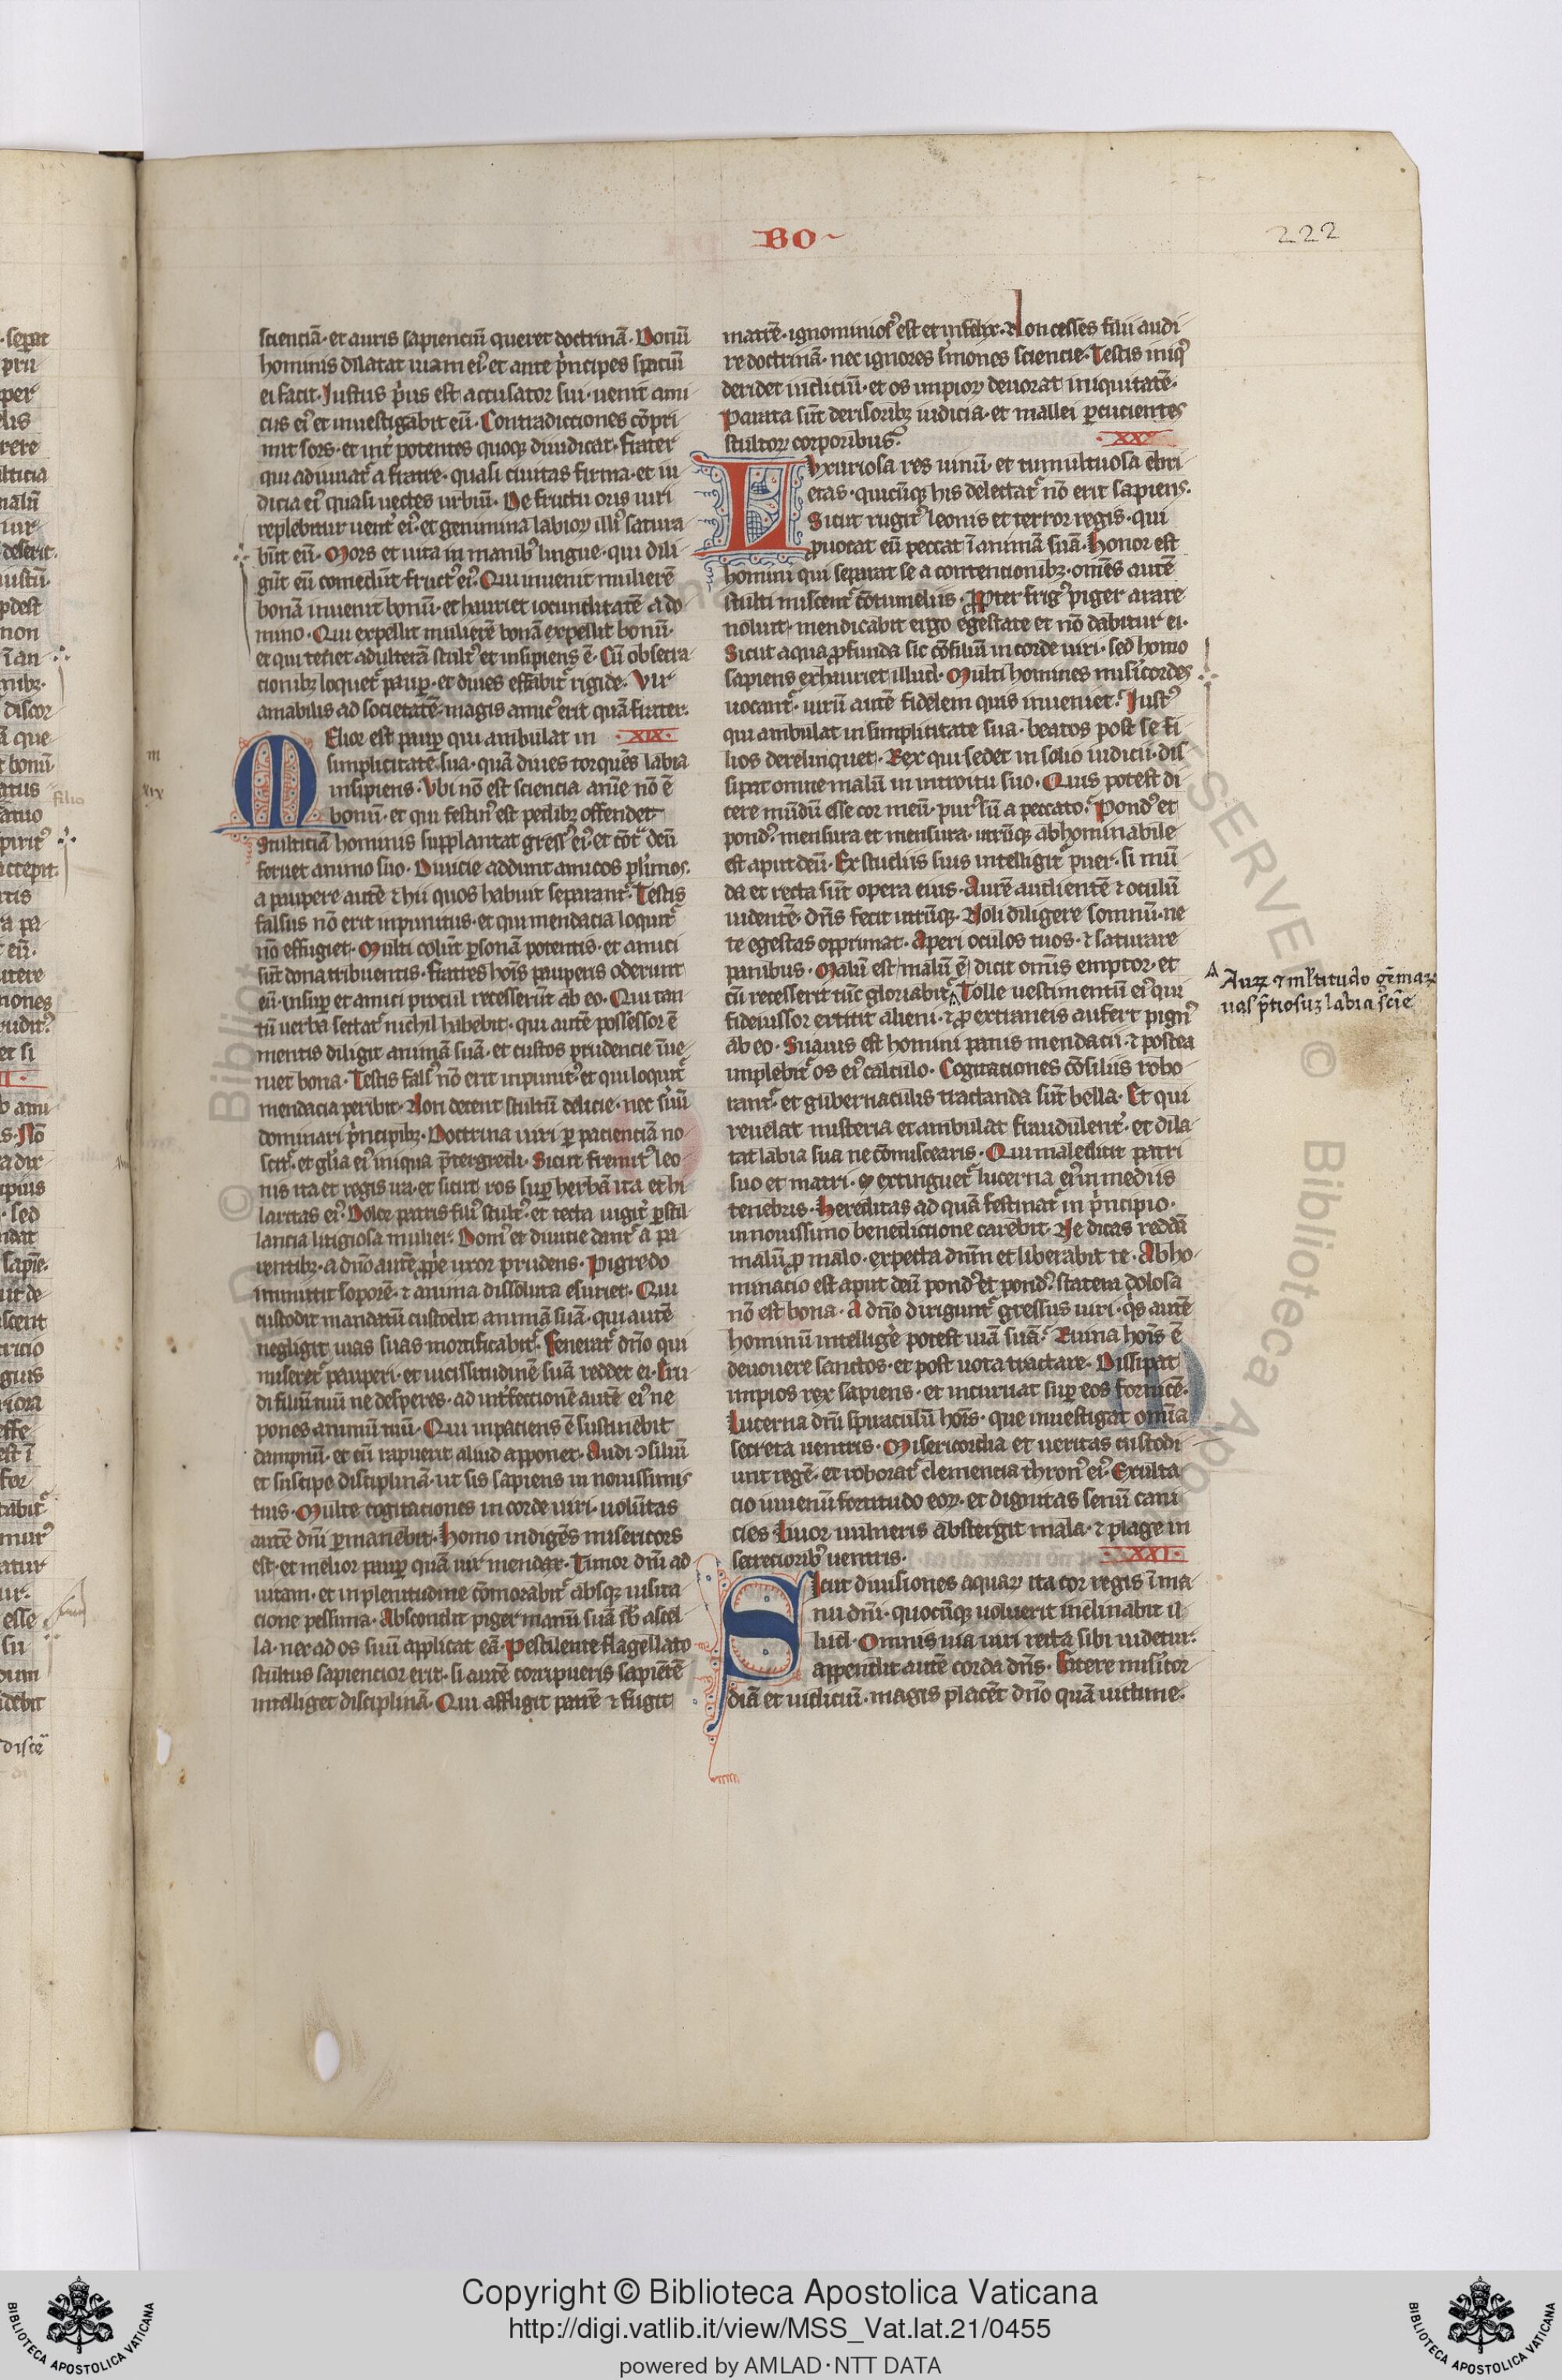 BO
222
scienciã · et auris sapienciũ queret doctrinã · Donũ
hominis dilatat uiam eiꝰ · et ante pͥncipes spaciũ
ei facit · Justus pͥus est accusator sui · uenit ami
cus eiꝰ et inuestigabit eũ · Contradicciones cõpri
mit sors · et int̉ potentes quoqꝫ diiudicat · frater
qui adiuuatᷣ a fratre · quasi ciuitas firma · et iu
dicia eiꝰ quasi uectes urbiũ · De fructu oris uiri
replebitur uent̉ eiꝰ · et genimina labioꝝ illiꝰ satura
bũt eũ · Mors et uita in manibꝰ lingue · qui dili
gũt eũ comedũt fructꝰ eiꝰ · Qui inuenit mulierẽ
bonã inuenit bonũ · et hauriet iocunditatẽ a do
mino · Qui expellit mulierẽ bonã expellit bonũ ·
et qui tenet adulterã stultꝰ et insipiens ẽ · Cũ obsecra
cionibꝫ loquetᷣ paupꝑ · et diues effabitᷣ rigide · Vir
amabilis ad societatẽ · magis amicꝰ erit quã frater ·
Melior est paupꝑ qui ambulat in · XIX ·
simplicitate sua · quã diues torquẽs labia
insipiens · Vbi nõ est sciencia anĩe nõ ẽ
bonũ · et qui festinꝰ est pedibꝫ offendet ·
Stulticiã hominis supplantat gressꝰ eiꝰ · et cõtᷓ deũ
feruet animo suo · Diuicie addunt amicos plͥmos ·
a paupere autẽ ⁊ hii quos habuit separantᷣ · Testis
falsus nõ erit inpunitus · et qui mendacia loquitᷣ
nõ effugiet · Multi colũt ꝑsonã potentis · et amici
sũt dona tribuentis · fratres hoĩs pauperis oderunt
eũ · insupꝑ et amici procul recesserũt ab eo · Qui tan
tũ uerba sectatᷣ nichil habebit · qui autẽ possessor ẽ
mentis diligit animã suã · et custos prudencie ĩue
niet bona · Testis falsꝰ nõ erit inpunitꝰ · et qui loquitᷣ
mendacia peribit · Non decent stultũ delicie · nec sͥuũ
dominari pͥncipibꝫ · Doctrina uiri ꝑ pacienciã no
scitᷣ · et glͣia eiꝰ iniqua p̃tergredi · Sicut fremitꝰ leo
nis ita et regis ira · et sicut ros supꝑ herbã ita et hi
laritas eiꝰ · Dolor patris filiꝰ stultꝰ · et tecta iugit̉ ꝑstil
lancia litigiosa mulier · Domꝰ et diuicie dantᷣ a pa
rentibꝫ · a dño autẽ ꝓpͥe uxor prudens · Pigredo
inmittit soporẽ · ⁊ anima dissoluta esuriet · Qui
custodit mandatũ custodit animã suã · qui autẽ
negligit uias suas mortificabitᷣ · Feneratᷣ dño qui
miseretᷣ pauperi · et uicissitudinẽ suã reddet ei · Eru
di filiũ tuũ ne desperes · ad int̉fectionẽ autẽ eiꝰ ne
pones animũ tuũ · Qui inpaciens ẽ sustinebit
dampnũ · et cũ rapuerit aliud apponet · Audi ↄsiliũ
et suscipe disciplinã · ut sis sapiens in nouissimis
tuis · Multe cogitaciones in corde uiri · uolũtas
autẽ dñi ꝑmanebit · Homo indigẽs misericors
est · et melior paupꝑ quã uir mendax · Timor dñi ad
uitam · et in plenitudine cõmorabitᷣ absqꝫ uisita
cione pessima · Abscondit piger manũ suã sƀ ascel
la · nec ad os suũ applicat eã · Pestilente flagellato
stultus sapiencior erit · si autẽ corripueris sapiẽtẽ
intelliget disciplinã · Qui affligit patrẽ ⁊ fugit
matrẽ · ignominiosꝰ est et infelix · Non cesses fili audi
re doctrinã · nec ignores sͥmones sciencie · Testis iniqꝰ
deridet iudiciũ · et os impioꝝ deuorat iniquitatẽ ·
Parata sũt derisoribꝫ iudicia · et mallei ꝑcucientes
stultoꝝ corporibus · XX ·
Lvxuriosa res uinũ · et tumultuosa ebri
etas · quicũqꝫ his delectatᷣ nõ erit sapiens ·
Sicut rugitꝰ leonis et terror regis · qui
ꝓuocat eũ peccat ĩ animã suã · Honor est
homini qui separat se a contencionibꝫ · om̃es autẽ
stulti miscentᷣ cõtumeliis · Ꝓpter frigꝰ piger arare
noluit · mendicabit ergo egestate et nõ dabitur ei ·
Sicut aqua ꝓfunda sic cõsiliũ in corde uiri · sed homo
sapiens exhauriet illud · Multi homines misͥicordes
uocantᷣ · uirũ autẽ fidelem quis inueniet · Justꝰ
qui ambulat in simplicitate sua · beatos post se fi
lios derelinquet · Rex qui sedet in solio iudicii · dis
sipat omne malũ in intuitu suo · Quis potest di
cere mũdũ esse cor meũ · purꝰ sũ a peccato · Pondꝰ et
pondꝰ mensura et mensura · utrũqꝫ abhominabile
est aput deũ · Ex studiis suis intelligitᷣ puer · si mũ
da et recta sũt opera eius · Aurẽ audientẽ ⁊ oculũ
uidentẽ · dñs fecit utrũqꝫ · Noli diligere somnũ · ne
te egestas opprimat · Aperi oculos tuos · ⁊ saturare
panibus · Malũ est malũ ẽ dicit om̃is emptor · et
cũ recesserit tũc gloriabitᷣ · Tolle uestimentũ eiꝰ qui
fideiussor extitit alieni · ⁊ ꝓ extraneis aufert pignꝰ
ab eo · Suauis est homini panis mendacii · ⁊ postea
implebitᷣ os eiꝰ calculo · Cogitaciones cõsiliis robo
rantᷣ · et gubernaculis tractanda sũt bella · Et qui
reuelat misteria et ambulat fraudulent̉ · et dila
tat labia sua ne cõmiscearis · Qui maledicit patri
suo et matri · extinguetᷣ lucerna eiꝰ in mediis
tenebris · Hereditas ad quã festinatᷣ in pͥncipio ·
in nouissimo benedictione carebit · Ne dicas reddã
malũ ꝓ malo · expecta dñm et liberabit te · Abho
minacio est aput deũ pondꝰ et pondꝰ · statera dolosa
nõ est bona · A dño diriguntᷣ gressus uiri · qͥs autẽ
hominũ intelligͤe potest uiã suã · Ruina hoĩs ẽ
deuouere sanctos · et post uota tractare · Dissipat
impios rex sapiens · et incuruat supꝑ eos fornicẽ ·
Lucerna dñi spiraculũ hoĩs · que inuestigat om̃ia
secreta uentris · Misericordia et ueritas custodi
unt regẽ · et roboratᷣ clemencia thronꝰ eiꝰ · Exulta
cio iuuenũ fortitudo eoꝝ · et dignitas senũ cani
cies · Liuor uulneris absterget mala · ⁊ plage in
secrecioribꝰ uentris · XXI ·
Sicut diuisiones aquaꝝ ita cor regis ĩ ma
nu dñi · quocũqꝫ uoluerit inclinabit il
lud · Omnis uia uiri recta sibi uidetur ·
appendit autẽ corda dñs · Facere misͥicor
diã et iudiciũ · magis placẽt dño quã uictime ·
Auꝝ ⁊ mͥltitudo gẽmaꝝ
uas p̃tiosuꝫ labia sciẽ
Copyright © Biblioteca Apostolica Vaticana
http://digi.vatlib.it/view/MSS_Vat.lat.21/0455
powered by AMLAD · NTT DATA
BIBLIOTECA APOSTOLICA VATICANA
BIBLIOTECA APOSTOLICA VATICANA